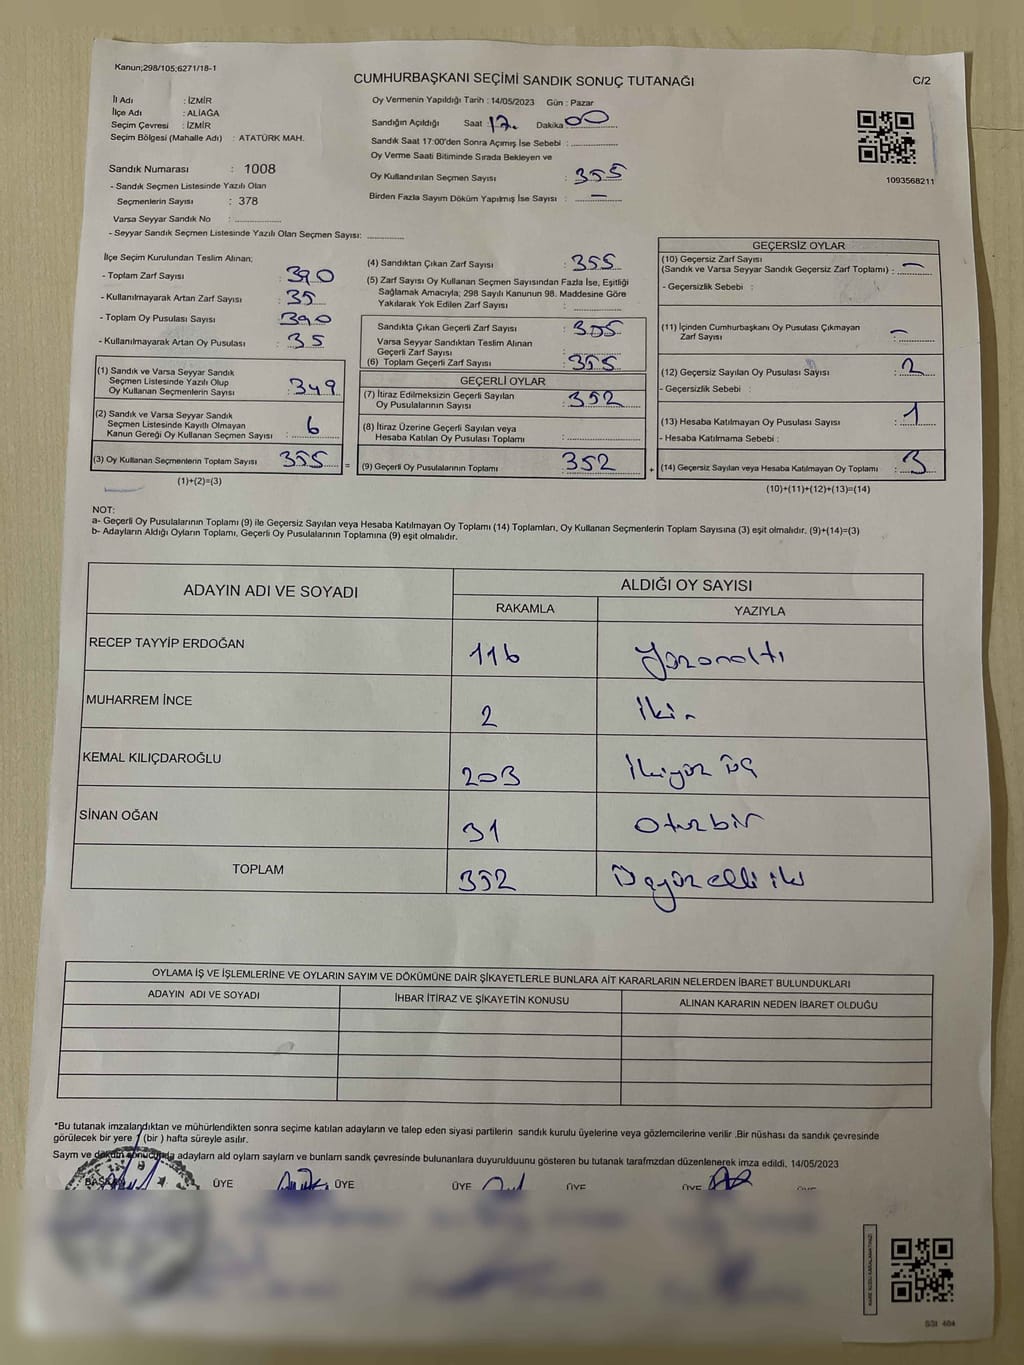 Kanun;298/105;6271/18-1
CUMHURBAŞKANI SEÇİMİ SANDIK SONUÇ TUTANAĞI
C/2
İl Adı : İZMİR
İlçe Adı : ALİAĞA
Seçim Çevresi : İZMİR
Seçim Bölgesi (Mahalle Adı) : ATATÜRK MAH.
Sandık Numarası : 1008
- Sandık Seçmen Listesinde Yazılı Olan
Seçmenlerin Sayısı : 378
Varsa Seyyar Sandık No :
- Seyyar Sandık Seçmen Listesinde Yazılı Olan Seçmen Sayısı:
Oy Vermenin Yapıldığı Tarih : 14/05/2023 Gün : Pazar
Sandığın Açıldığı Saat : 17. Dakika 00
Sandık Saat 17:00'den Sonra Açımış İse Sebebi :
Oy Verme Saati Bitiminde Sırada Bekleyen ve
Oy Kullandırılan Seçmen Sayısı : 355
Birden Fazla Sayım Döküm Yapılmış İse Sayısı : —
1093568211
İlçe Seçim Kurulundan Teslim Alınan;
- Toplam Zarf Sayısı : 390
- Kullanılmayarak Artan Zarf Sayısı : 35
- Toplam Oy Pusulası Sayısı : 390
- Kullanılmayarak Artan Oy Pusulası : 35
(1) Sandık ve Varsa Seyyar Sandık
Seçmen Listesinde Yazılı Olup
Oy Kullanan Seçmenlerin Sayısı : 349
(2) Sandık ve Varsa Seyyar Sandık
Seçmen Listesinde Kayıtlı Olmayan
Kanun Gereği Oy Kullanan Seçmen Sayısı : 6
(3) Oy Kullanan Seçmenlerin Toplam Sayısı : 355
(1)+(2)=(3)
(4) Sandıktan Çıkan Zarf Sayısı : 355
(5) Zarf Sayısı Oy Kullanan Seçmen Sayısından Fazla İse, Eşitliği
Sağlamak Amacıyla; 298 Sayılı Kanunun 98. Maddesine Göre
Yakılarak Yok Edilen Zarf Sayısı :
Sandıkta Çıkan Geçerli Zarf Sayısı : 355
Varsa Seyyar Sandıktan Teslim Alınan
Geçerli Zarf Sayısı :
(6) Toplam Geçerli Zarf Sayısı : 355
GEÇERLİ OYLAR
(7) İtiraz Edilmeksizin Geçerli Sayılan
Oy Pusulalarının Sayısı : 352
(8) İtiraz Üzerine Geçerli Sayılan veya
Hesaba Katılan Oy Pusulası Toplamı :
= (9) Geçerli Oy Pusulalarının Toplamı : 352 +
GEÇERSİZ OYLAR
(10) Geçersiz Zarf Sayısı
(Sandık ve Varsa Seyyar Sandık Geçersiz Zarf Toplamı) : —
- Geçersizlik Sebebi :
(11) İçinden Cumhurbaşkanı Oy Pusulası Çıkmayan
Zarf Sayısı : —
(12) Geçersiz Sayılan Oy Pusulası Sayısı : 2
- Geçersizlik Sebebi :
(13) Hesaba Katılmayan Oy Pusulası Sayısı : 1
- Hesaba Katılmama Sebebi :
(14) Geçersiz Sayılan veya Hesaba Katılmayan Oy Toplamı : 3
(10)+(11)+(12)+(13)=(14)
NOT:
a- Geçerli Oy Pusulalarının Toplamı (9) ile Geçersiz Sayılan veya Hesaba Katılmayan Oy Toplamı (14) Toplamları, Oy Kullanan Seçmenlerin Toplam Sayısına (3) eşit olmalıdır. (9)+(14)=(3)
b- Adayların Aldığı Oyların Toplamı, Geçerli Oy Pusulalarının Toplamına (9) eşit olmalıdır.
ADAYIN ADI VE SOYADI
ALDIĞI OY SAYISI
RAKAMLA YAZIYLA
RECEP TAYYİP ERDOĞAN 116 Yüzonaltı
MUHARREM İNCE 2 İki
KEMAL KILIÇDAROĞLU 203 İkiyüz üç
SİNAN OĞAN 31 Otuzbir
TOPLAM 352 Üçyüzelli iki
OYLAMA İŞ VE İŞLEMLERİNE VE OYLARIN SAYIM VE DÖKÜMÜNE DAİR ŞİKAYETLERLE BUNLARA AİT KARARLARIN NELERDEN İBARET BULUNDUKLARI
ADAYIN ADI VE SOYADI İHBAR İTİRAZ VE ŞİKAYETİN KONUSU ALINAN KARARIN NEDEN İBARET OLDUĞU
*Bu tutanak imzalandıktan ve mühürlendikten sonra seçime katılan adayların ve talep eden siyasi partilerin sandık kurulu üyelerine veya gözlemcilerine verilir .Bir nüshası da sandık çevresinde
görülecek bir yere 1 (bir ) hafta süreyle asılır.
Sayım ve döküm sonucunda adayların ald oylam saylarn ve bunlarn sandk çevresinde bulunanlara duyurulduunu gösteren bu tutanak tarafmzdan düzenlenerek imza edildi. 14/05/2023
BAŞKAN ÜYE ÜYE ÜYE ÜYE ÜYE ÜYE